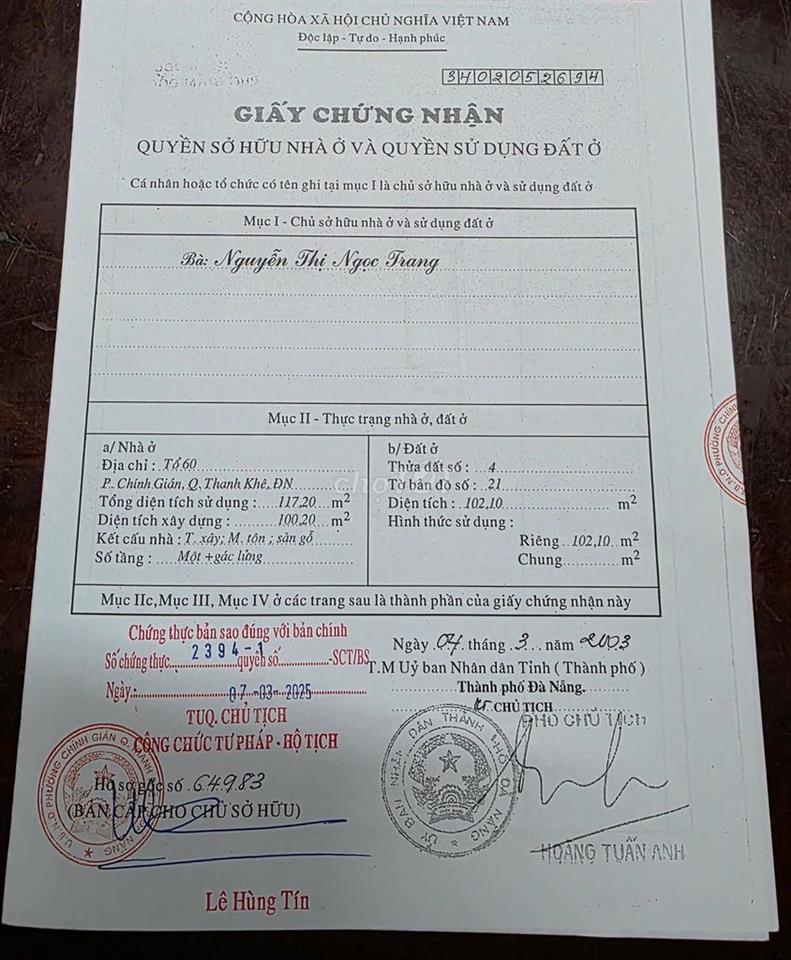 CỘNG HÒA XÃ HỘI CHỦ NGHĨA VIỆT NAM
Độc lập - Tự do - Hạnh phúc
3402052694
GIẤY CHỨNG NHẬN
QUYỀN SỞ HỮU NHÀ Ở VÀ QUYỀN SỬ DỤNG ĐẤT Ở
Cá nhân hoặc tổ chức có tên ghi tại mục I là chủ sở hữu nhà ở và sử dụng đất ở
Mục I - Chủ sở hữu nhà ở và sử dụng đất ở
Bà: Nguyễn Thị Ngọc Trang
Mục II - Thực trạng nhà ở, đất ở
a/ Nhà ở
Địa chỉ : Tổ 60
P. Chính Gián, Q. Thanh Khê, ĐN
Tổng diện tích sử dụng : 117,20 m2
Diện tích xây dựng : 100,20 m2
Kết cấu nhà : T. xây; M. tôn ; sàn gỗ
Số tầng : Một + gác lửng
b/ Đất ở
Thửa đất số : 4
Tờ bản đồ số : 21
Diện tích : 102,10 m2
Hình thức sử dụng :
Riêng 102,10 m2
Chung m2
Mục IIc, Mục III, Mục IV ở các trang sau là thành phần của giấy chứng nhận này
Chứng thực bản sao đúng với bản chính
Số chứng thực 2394-1 quyển số -SCT/BS
Ngày: 07-03-2025
TUQ. CHỦ TỊCH
CÔNG CHỨC TƯ PHÁP - HỘ TỊCH
Hồ sơ gốc số 64983
(BẢN CẤP CHO CHỦ SỞ HỮU)
Lê Hùng Tín
Ngày 04 tháng 3 năm 2003
T.M Uỷ ban Nhân dân Tỉnh ( Thành phố )
Thành phố Đà Nẵng
KT. CHỦ TỊCH
PHÓ CHỦ TỊCH
ỦY BAN NHÂN DÂN THÀNH PHỐ ĐÀ NẴNG
HOÀNG TUẤN ANH